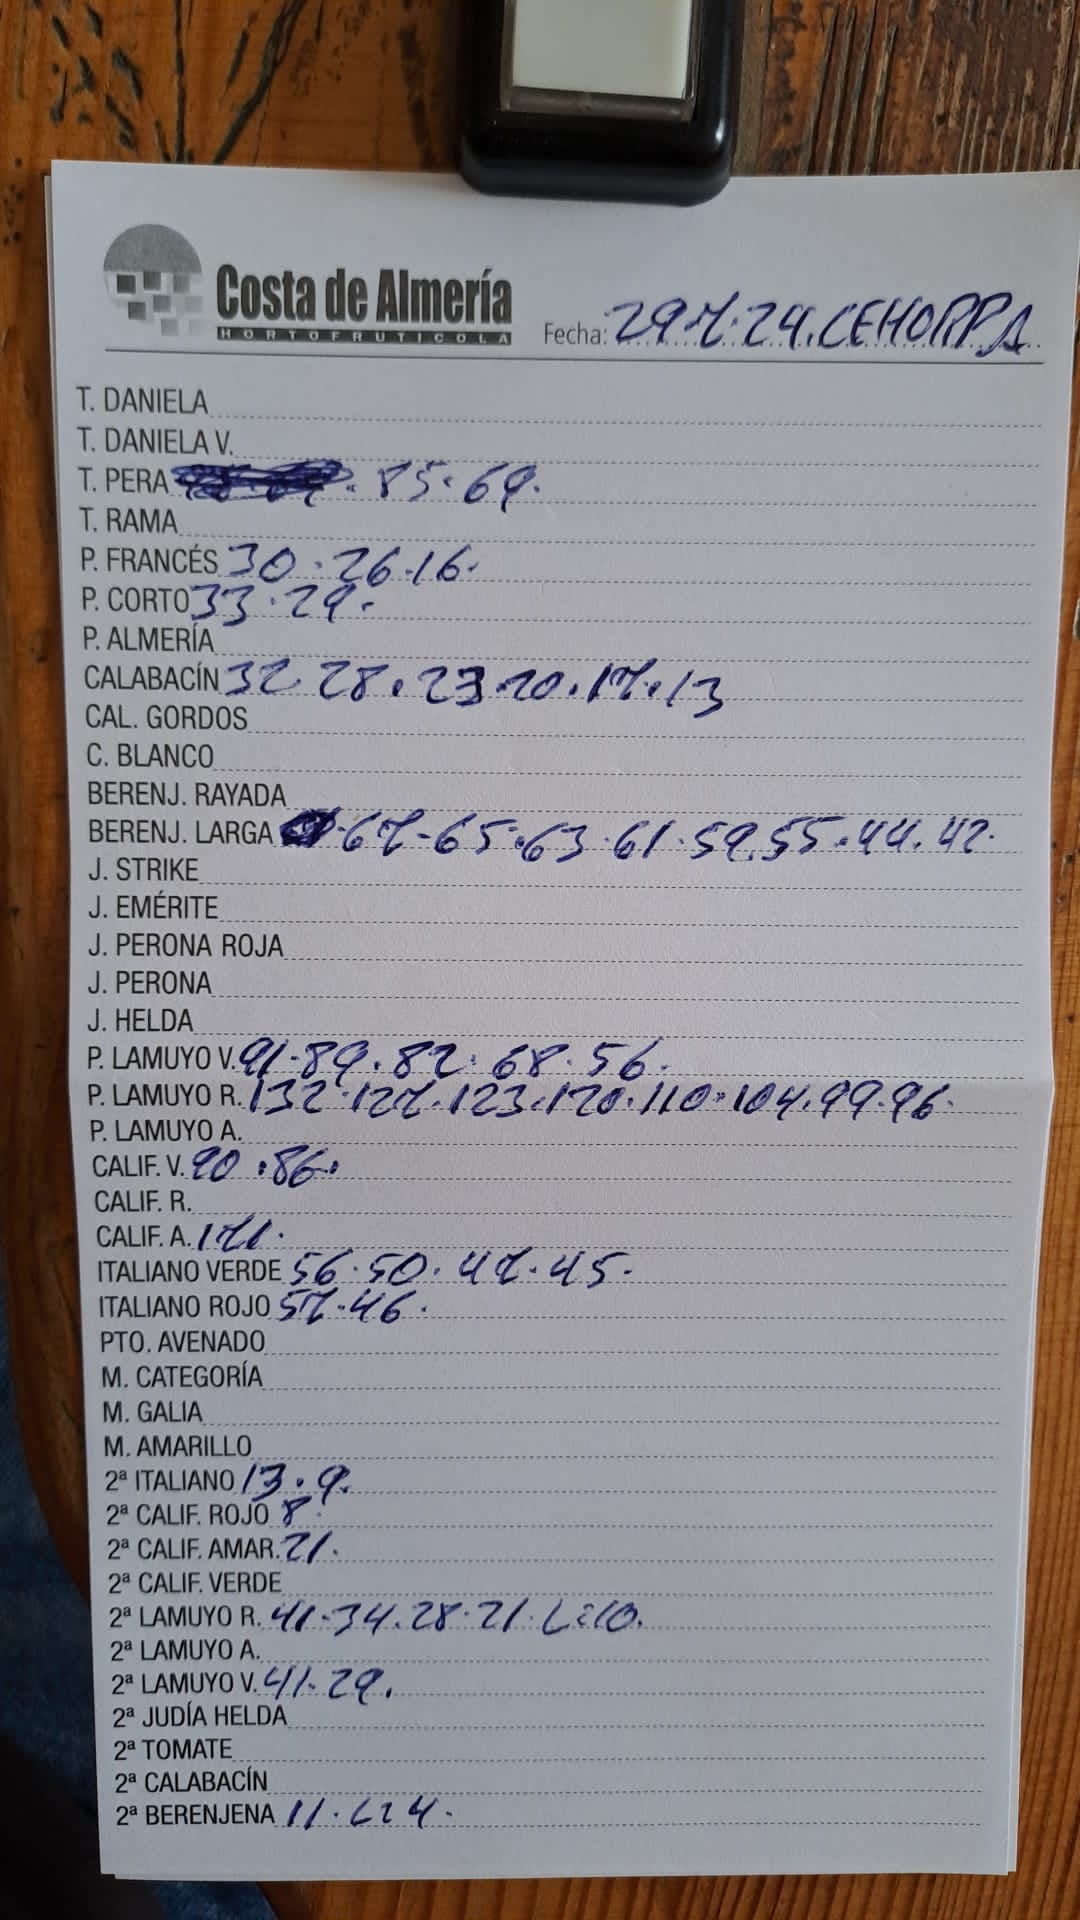 Costa de Almería
HORTOFRUTICOLA
Fecha: 29.7.24. CEHORPA
T. DANIELA
T. DANIELA V.
T. PERA . 85. 69.
T. RAMA
P. FRANCÉS 30 . 26 . 16.
P. CORTO 33 . 29.
P. ALMERÍA
CALABACÍN 32 28 . 23 . 20 . 17 . 13
CAL. GORDOS
C. BLANCO
BERENJ. RAYADA
BERENJ. LARGA - 67 - 65 . 63 . 61 . 59 . 55 . 44 . 42.
J. STRIKE
J. EMÉRITE
J. PERONA ROJA
J. PERONA
J. HELDA
P. LAMUYO V. 91 - 89 . 82 . 68 . 56.
P. LAMUYO R. 132 . 127 . 123 . 120 . 110 . 104 . 99 . 96.
P. LAMUYO A.
CALIF. V. 90 . 86.
CALIF. R.
CALIF. A. 171.
ITALIANO VERDE 56 . 50 . 47 . 45.
ITALIANO ROJO 57 . 46.
PTO. AVENADO
M. CATEGORÍA
M. GALIA
M. AMARILLO
2ª ITALIANO 13 . 9.
2ª CALIF. ROJO 8
2ª CALIF. AMAR. 21.
2ª CALIF. VERDE
2ª LAMUYO R. 41 . 34 . 28 . 21 .
2ª LAMUYO A.
2ª LAMUYO V. 41 . 29.
2ª JUDÍA HELDA
2ª TOMATE
2ª CALABACÍN
2ª BERENJENA 11 .